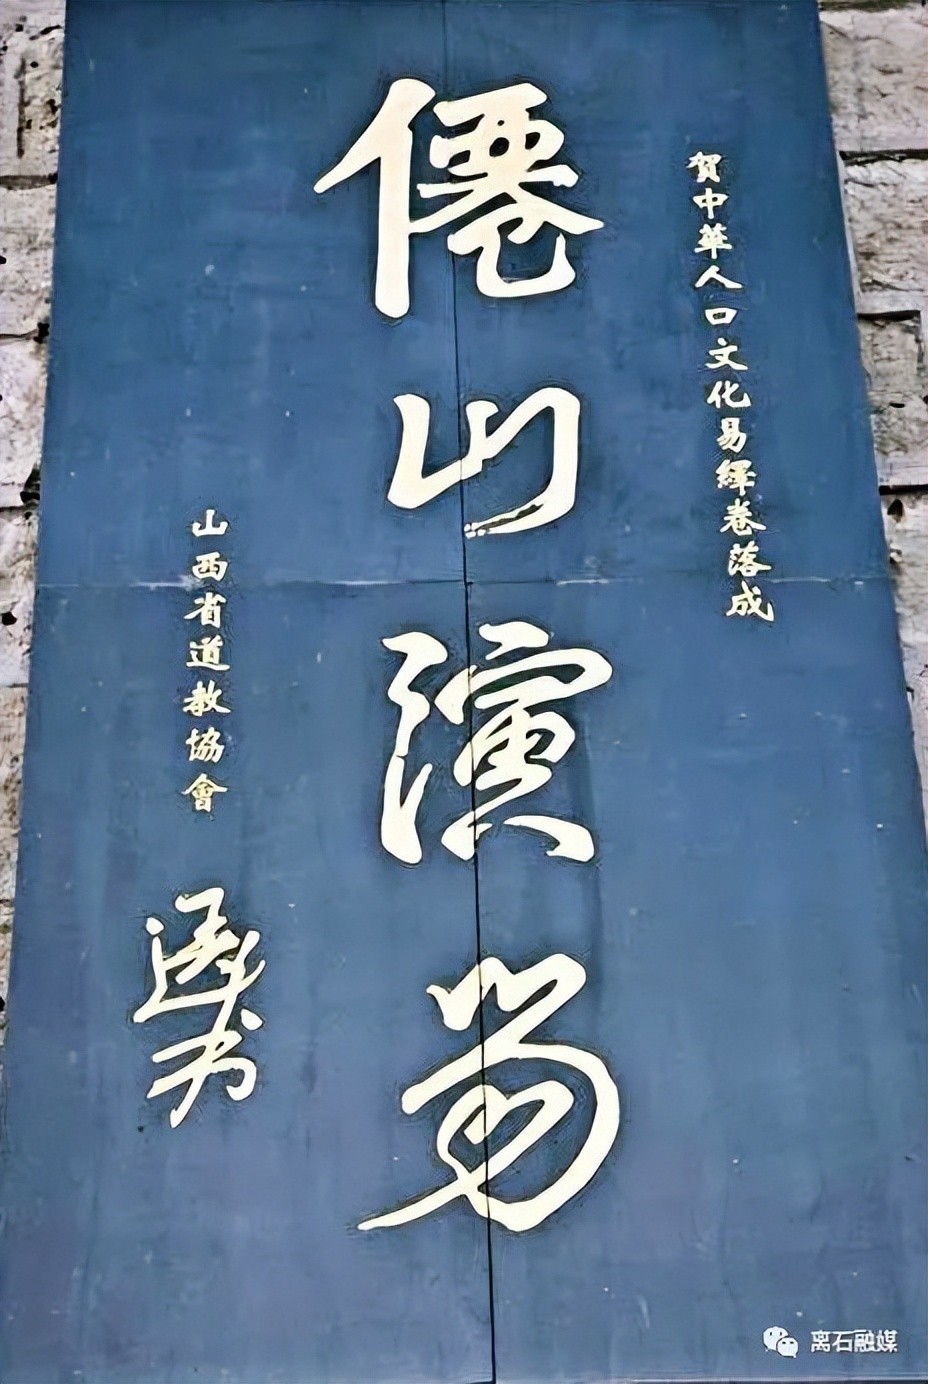 賀中華人口文化易繹卷落成
僊山演易
山西省道教協會
离石融媒